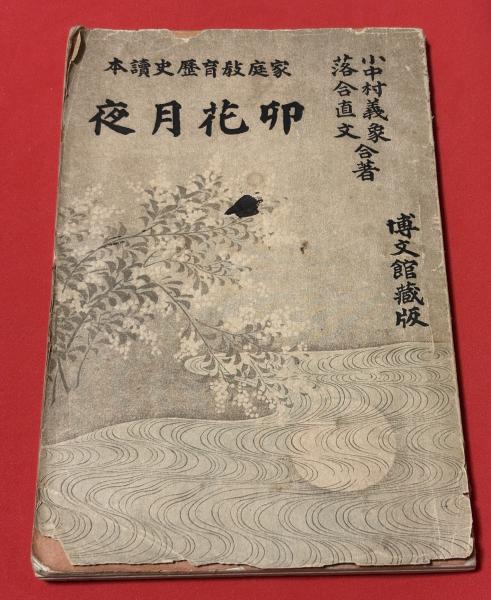 家庭教育歴史讀本
卯花月夜
小中村義象
落合直文
合著
博文館藏版